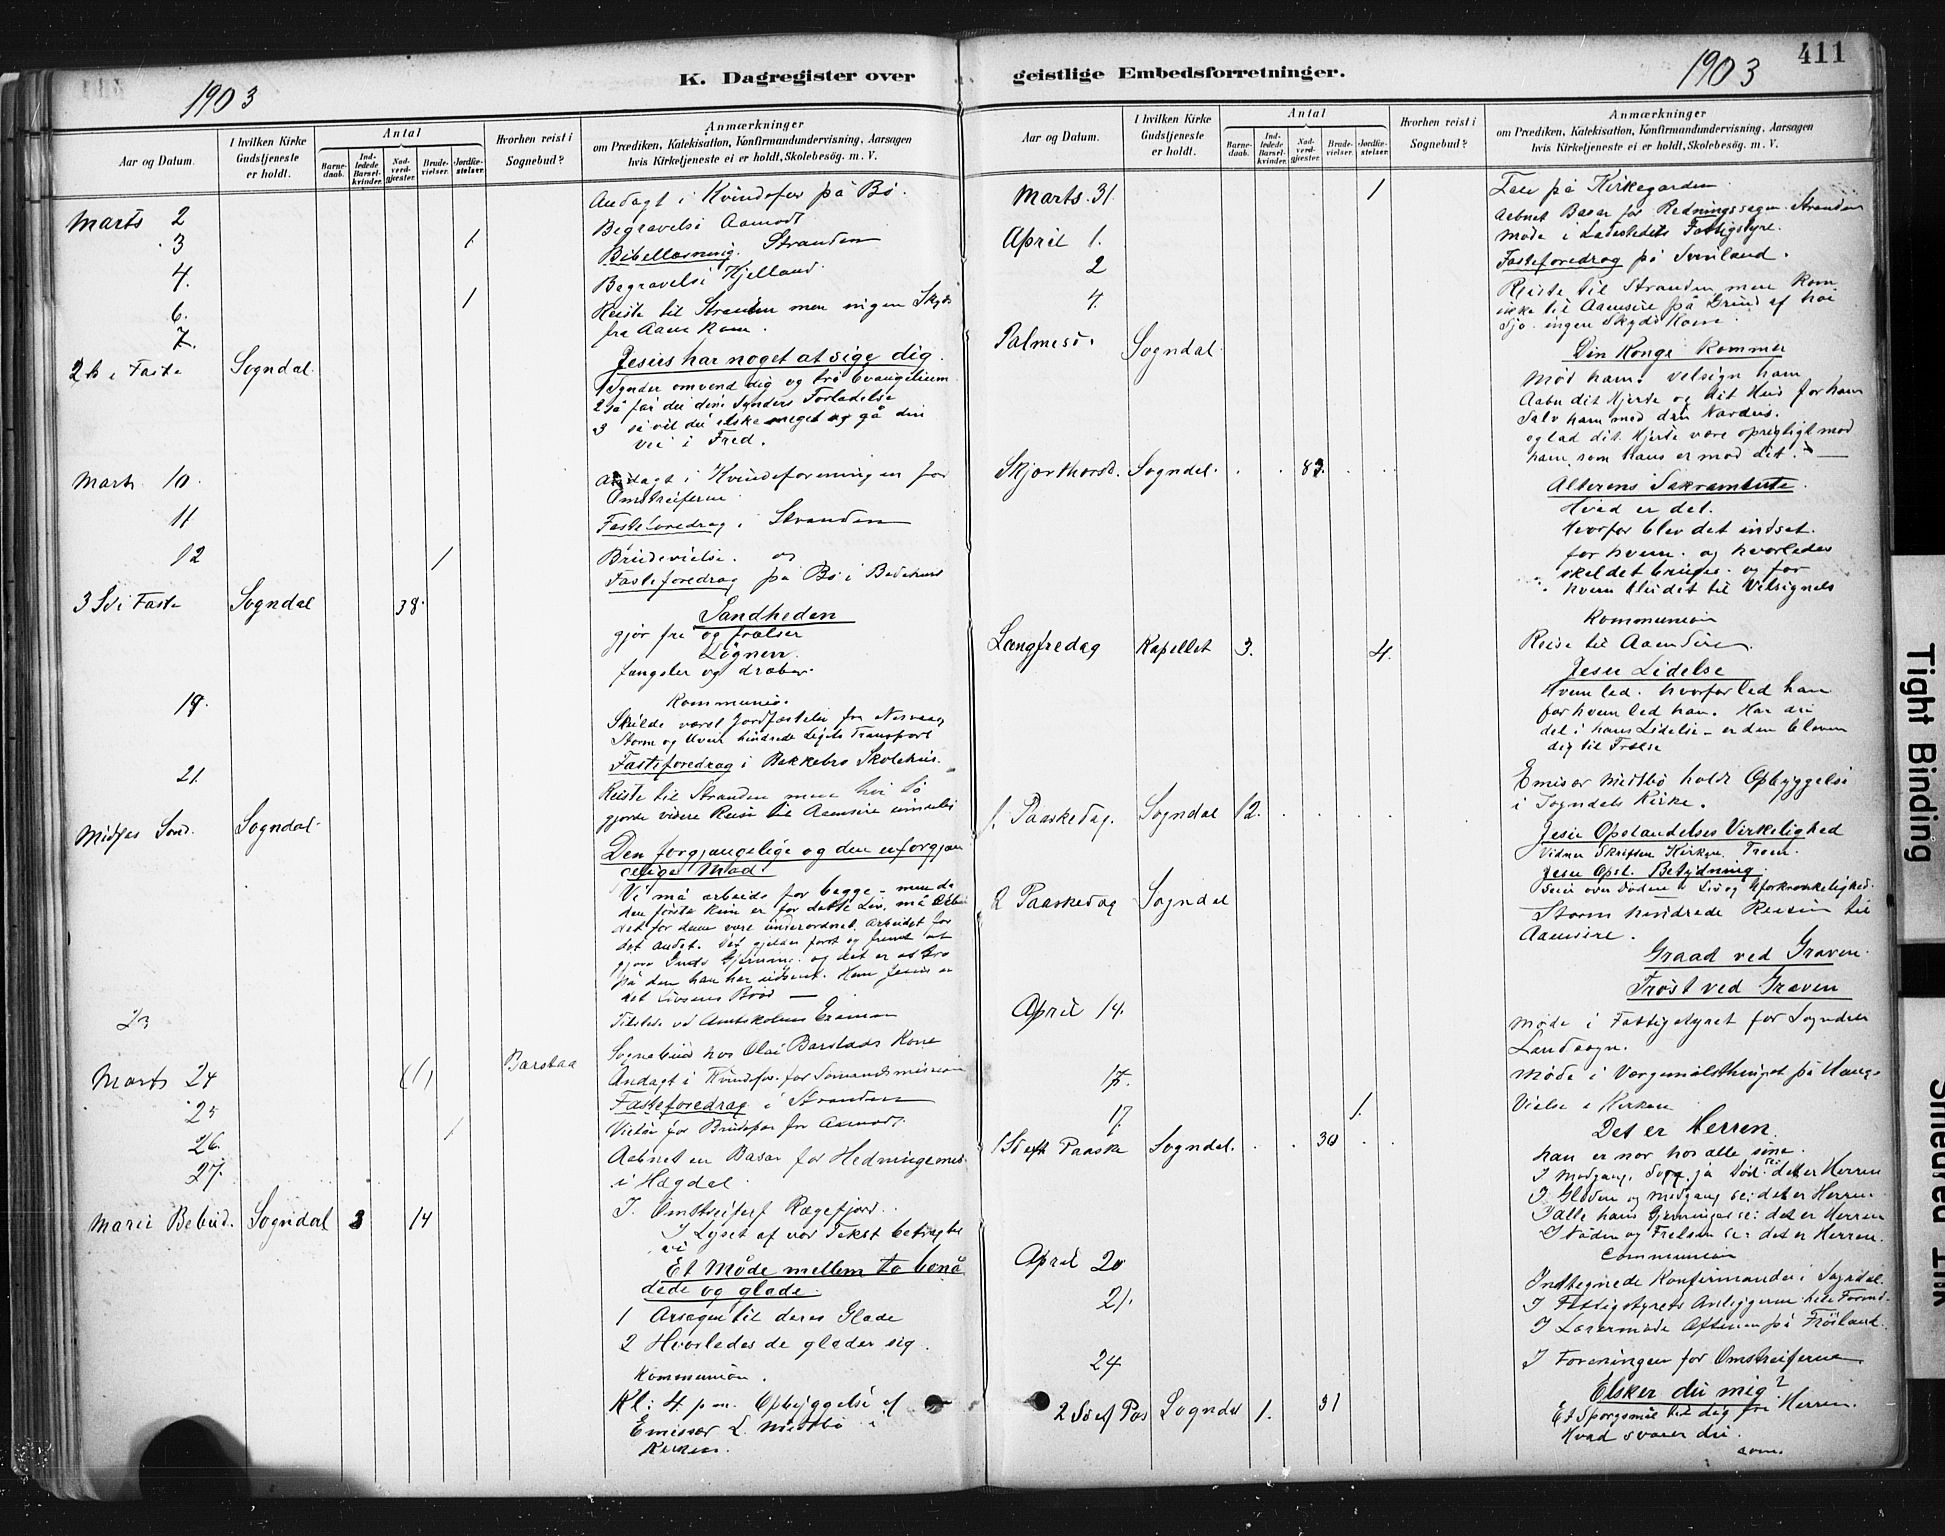 1903
K. Dagregister over
Aar og Datum.
I hvilken Kirke Gudstjeneste er holdt.
Antal
Barnedaab.
Indledede Barselkvinder.
Nadverdgjæster.
Brudevielser.
Jordfæstelser.
Hvorhen reist i Sognebud?
Anmærkninger
om Prædiken, Katekisation, Konfirmandundervisning, Aarsagen
hvis Kirketjeneste ei er holdt, Skolebesøg. m. V.
Andagt i Kvindefor på Bø.
Marts 2 Begravelse Aamodt
3 1 Bibellæsning. Stranden
4. Begravelse Hjelland.
6. 1 Reiste til Stranden men ingen Skyds
7. fra Aana kom.
2 S i Faste Sogndal. Jesus har noget at sige dig.
1 Synder omvend dig og tro Evangelium
2 så får du dine Synders Forladelse
3 så vil du elske meget og gå din
vei i Fred.
Marts 10. Andagt i Kvindeforeningen for
Omstreiferne
11 Fasteforedrag i Stranden
12 1 Brudevielse. og
Fasteforedrag på Bø i Bedehus
3 S i Faste Sogndal 38. Sandheden
gjør fri og frelser
Løgnen
fængsler og dræber.
Kommunion.
19. Skulde været Jordfæstelse fra
Storm og hindrede Ligets Transport
Fasteforedrag i Bakkebø Skolehus.
21 Reiste til Stranden men høi Sø
gjorde videre Reise til Aanasire umulig
Midfas Sønd. Sogndal. Den forgjængelige og den uforgjæn
gelige Mad
Vi må arbeide for begge – men da
den første kun er for dette Liv, må Arbei
det for denne være underordnet Arbeidet for
det andet. Det gjelder først og fremst at
gjøre Guds Gjerning. og det er at tro
på den han har udsendt. Men Jesus er
det Livsens Brød —
23 Tilstede ved Amtskolens Examen
Barstaa Sognebud hos Olai Barstads Kone
Marts 24 (1) Andagt i Kvindefor. for Sømandsmission
25 Fasteforedrag i Stranden
26. 1 Vielse for Brudepar fra Aamodt.
27. Aabnet en Basar for Hedningemis.
i Hægdal.
Marie Bebud. Sogndal 3 14 I. Omstreiferf Rægefjord.
I Lyset af vor Tekst betragter
vi
Et Møde mellem to benå
dede og glade.
1 Arsagen til deres Glæde
2 Hvorledes de glæder sig.
Kommunion.
Kl: 4 p.m. Opbyggelse af
Emissær L. Midtbø i
Kirken.
1903 411
geistlige Embedsforretninger.
Aar og Datum.
I hvilken Kirke Gudstjeneste er holdt.
Antal
Barnedaab.
Indledede Barselkvinder.
Nadverdgjæster.
Brudevielser.
Jordfæstelser.
Hvorhen reist i Sognebud?
Anmærkninger
om Prædiken, Katekisation, Konfirmandundervisning, Aarsagen
hvis Kirketjeneste ei er holdt, Skolebesøg. m. V.
Marts 31. 1 Tale på Kirkegarden
Aabnet Basar for Redningssagen Stranden
April 1. Møde i Ladestedets Fattigstyre.
2 Fasteforedrag på Svinland.
4. Reiste til Stranden men kom
ikke til Aanasire på Grund af høi
Sjø. ingen Skyds kom.
Palmesø. Sogndal. Din Konge kommer
Mød ham. velsign ham
Aabn dit Hjerte og dit Hus for ham
Salv ham med din Nardus.
og lad dit Hjerte være oprigtigt mod
ham som Hans er mod dit.
Skjærthorsd. Sogndal. 83. Alterens Sakramente.
Hvad er det.
Hvorfor blev det indsat.
for hvem. og hvorledes
skal det bruges. og for
hvem blir det til Velsignels
Kommunion
Langfredag Kapellet 3. 4. Reise til Aanasire.
Jesu Lidelse
Hvem led. hvorfor led han
for hvem led han. Har du
del i hans Lidelse – er den bleven
dig til Frelse
Emisær Midtbø holdt Opbyggelse
i Sogndals Kirke.
1. Paaskedag. Sogndal 12. Jesu Opstandelses Virkelighed
Vidner Skriften Kirken. Troen.
Jesu Opst. Betydning.
Seier over Døden Liv og Uforkrænkelighed.
2 Paaskedag Sogndal Storm hindrede Reisen til
Aanasire.
Graad ved Graven.
Trøst ved Graven
April 14. Møde i Fattigstyret for Sogndals
Landsogn.
17. Møde i Værgemålsthinget på Hauge
17. 1. Vielse i Kirken
1 S eft Paaske Sogndal. 30 Det er Herren
han er nær hos alle sine.
I Modgang, Sorg ja Død se: det er Herren
I Glæden og medgang se: det er Herren.
I alle hans Gjerninger se: det er Herren
I Nøden og Frelsen se: det er Herren.
Communion
April 20 Indtegnede Konfirmander i Sogndal.
21. I Fattigstyrets Anliggender hele Formd.
I Lærermøde Aftenen på Frøiland.
24 I Foreningen for Omstreiferne
2 S ef Pas Sogndal 1. 31 Elsker du mig?
Et Spørgsmål til dig fra Herren.
Hvad svarer du.
Tight Binding